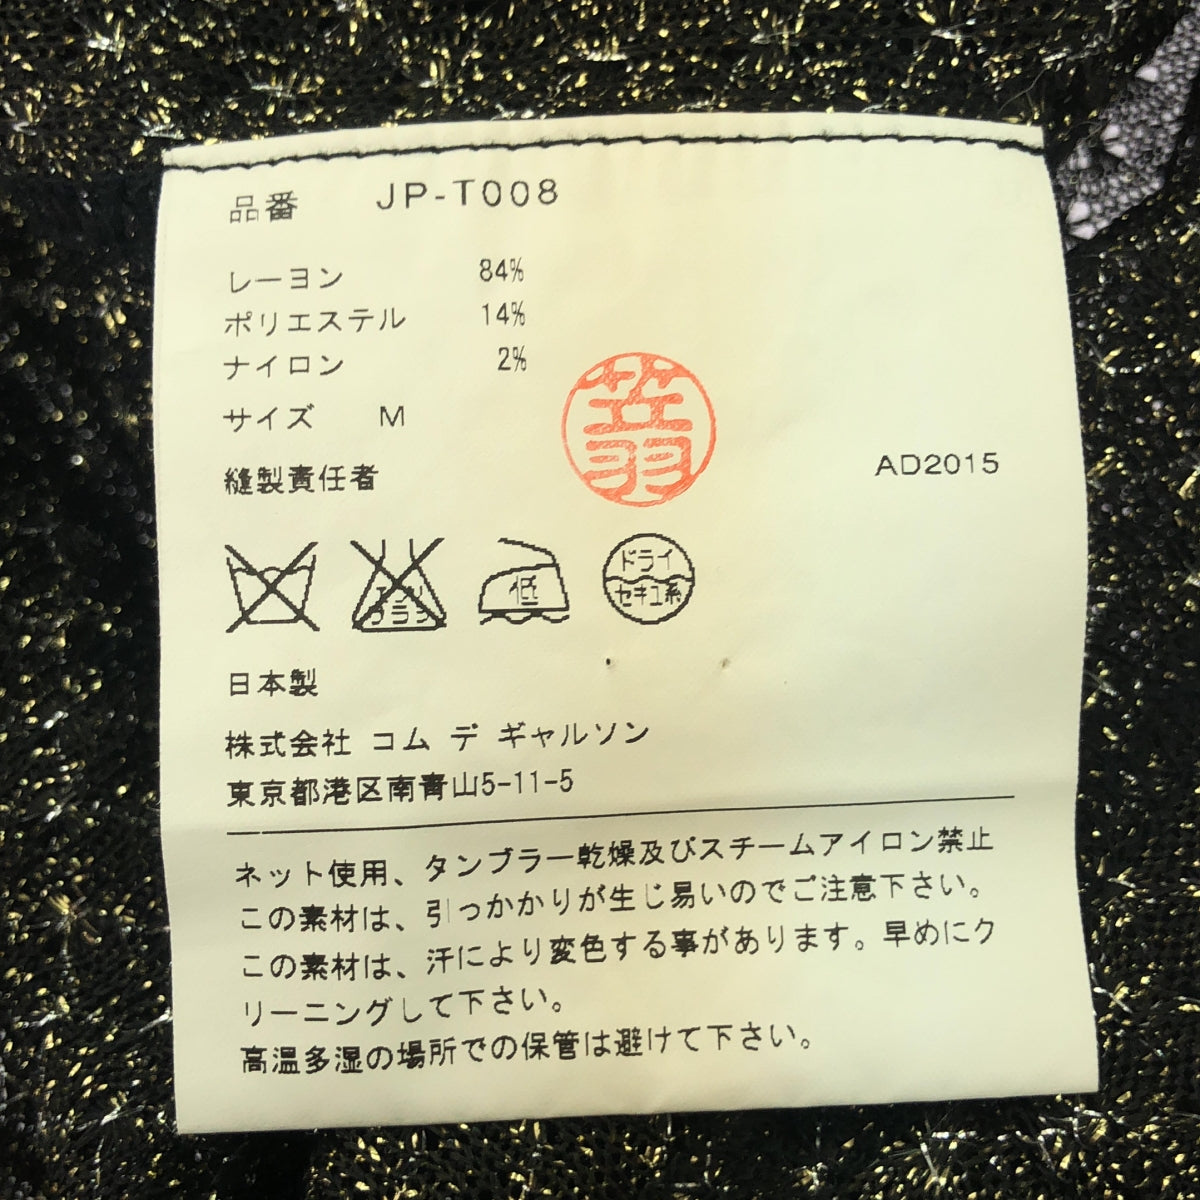 品番 JP-T008
レーヨン 84%
ポリエステル 14%
ナイロン 2%
サイズ M
縫製責任者
AD2015
エンソ
フラジ
低
ドライ
セキユ系
日本製
株式会社 コム デ ギャルソン
東京都港区南青山5-11-5
ネット使用、タンブラー乾燥及びスチームアイロン禁止
この素材は、引っかかりが生じ易いのでご注意下さい。
この素材は、汗により変色する事があります。早めにク
リーニングして下さい。
高温多湿の場所での保管は避けて下さい。